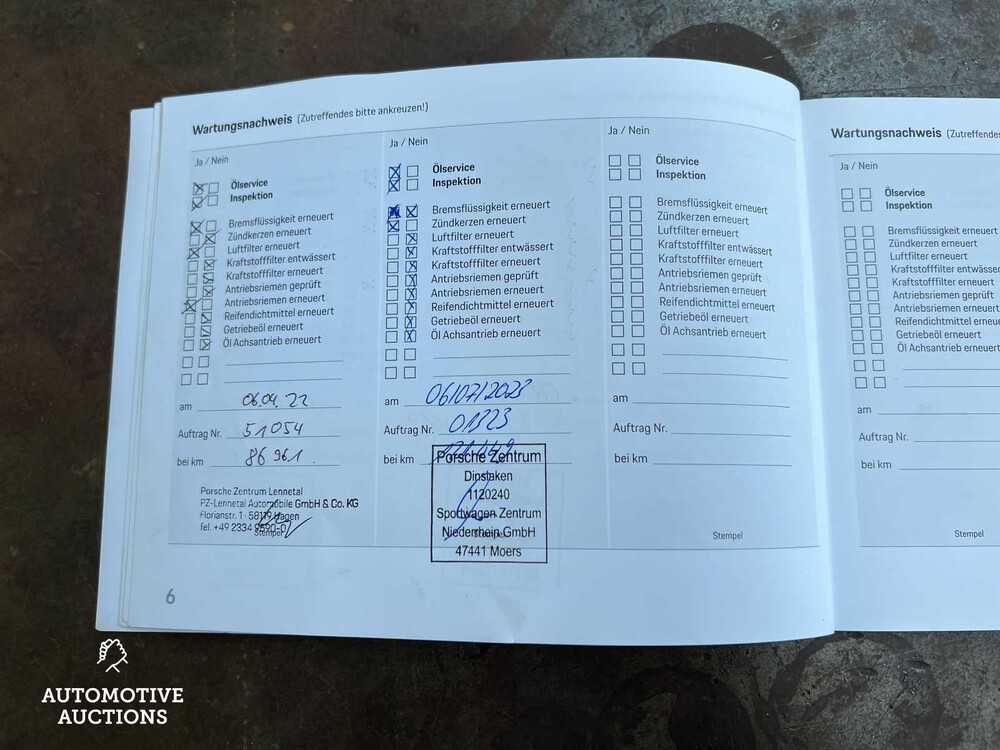 Wartungsnachweis (Zutreffendes bitte ankreuzen!)
Ja / Nein
Ölservice
Inspektion
Bremsflüssigkeit erneuert
Zündkerzen erneuert
Luftfilter erneuert
Kraftstofffilter entwässert
Kraftstofffilter erneuert
Antriebsriemen geprüft
Antriebsriemen erneuert
Reifendichtmittel erneuert
Getriebeöl erneuert
Öl Achsantrieb erneuert
am 06.04.22
Auftrag Nr. 51054
bei km 86 961
Porsche Zentrum Lennetal
PZ-Lennetal Automobile GmbH & Co. KG
Florianstr. 1 · 58119 Hagen
Tel. +49 2334 9590-0
Stempel
Ja / Nein
Ölservice
Inspektion
Bremsflüssigkeit erneuert
Zündkerzen erneuert
Luftfilter erneuert
Kraftstofffilter entwässert
Kraftstofffilter erneuert
Antriebsriemen geprüft
Antriebsriemen erneuert
Reifendichtmittel erneuert
Getriebeöl erneuert
Öl Achsantrieb erneuert
am 06/07/2023
Auftrag Nr. 01323
bei km
Porsche Zentrum
Dinslaken
1120240
Sportwagen Zentrum
Niederrhein GmbH
47441 Moers
Stempel
Ja / Nein
Ölservice
Inspektion
Bremsflüssigkeit erneuert
Zündkerzen erneuert
Luftfilter erneuert
Kraftstofffilter entwässert
Kraftstofffilter erneuert
Antriebsriemen geprüft
Antriebsriemen erneuert
Reifendichtmittel erneuert
Getriebeöl erneuert
Öl Achsantrieb erneuert
am
Auftrag Nr.
bei km
Stempel
6
Wartungsnachweis (Zutreffendes
Ja / Nein
Ölservice
Inspektion
Bremsflüssigkeit erneuert
Zündkerzen erneuert
Luftfilter erneuert
Kraftstofffilter entwässer
Kraftstofffilter erneuert
Antriebsriemen geprüft
Antriebsriemen erneuert
Reifendichtmittel erneue
Getriebeöl erneuert
Öl Achsantrieb erneuert
am
Auftrag Nr.
bei km
Stempel
AUTOMOTIVE
AUCTIONS